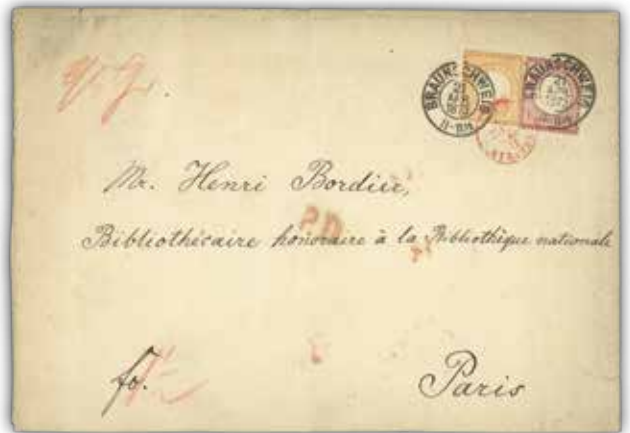 BRAUNSCHWEIG
BRAUNSCHWEIG
Mr. Henri Bordier,
P.D.
Bibliothécaire honoraire à la Bibliothèque nationale
fo.
Paris